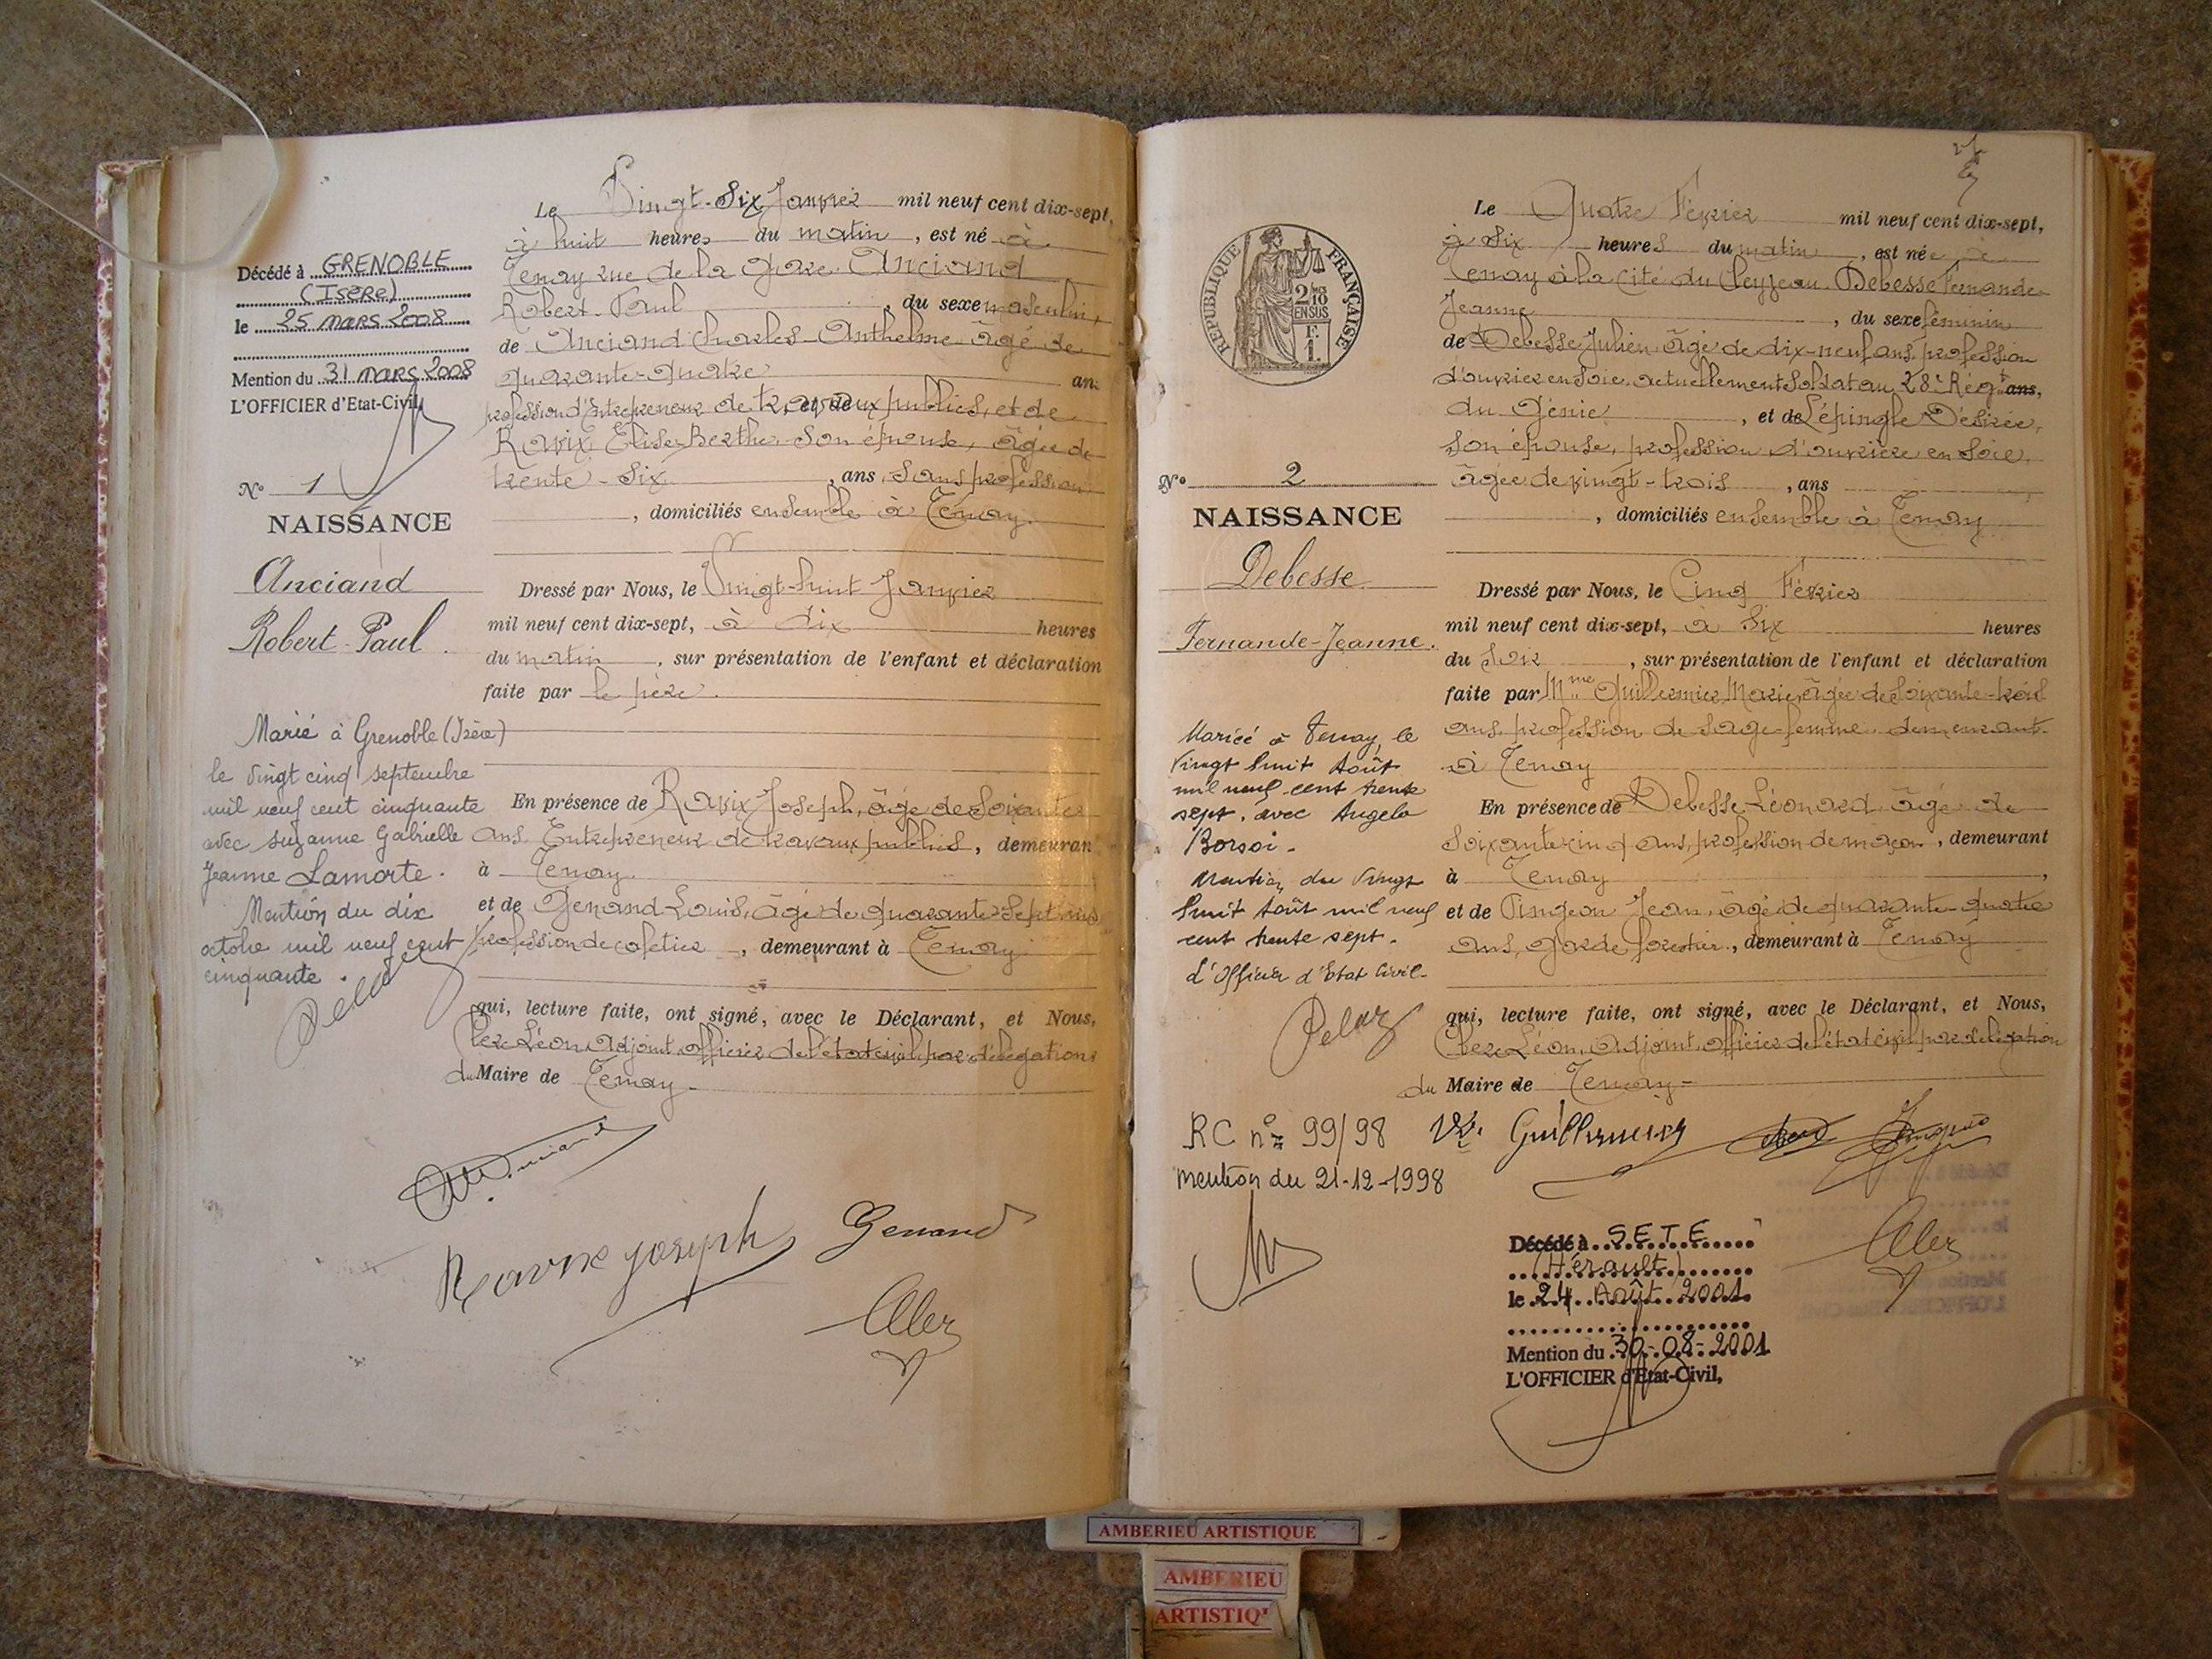 Décédé à GRENOBLE
(ISère)
le 25 mars 2008
Mention du 31 mars 2008
L'OFFICIER d'Etat-Civil,
N° 1
NAISSANCE
Anciand
Robert-Paul
Marié à Grenoble (Isère)
le vingt cinq septembre
mil neuf cent cinquante
avec suzanne Gabrielle
Jeanne Lamorte.
Mention du dix
octobre mil neuf cent
cinquante.
Le Vingt-Six Janvier mil neuf cent dix-sept,
à huit heures du matin, est né à
Tenay rue de la Gare Anciand
Robert-Paul, du sexe masculin,
de Anciand Charles-Anthelme âgé de
quarante-quatre ans
profession d'Entrepreneur de travaux publics, et de
Ravix Elise-Berthe son épouse, âgée de
trente-six, ans, sans profession
, domiciliés ensemble à Tenay.
Dressé par Nous, le Vingt-huit Janvier
mil neuf cent dix-sept, à dix heures
du matin, sur présentation de l'enfant et déclaration
faite par le père.
En présence de Ravix Joseph, âgé de soixante
ans Entrepreneur de travaux publics, demeuran
à Tenay.
et de Genand Louis, âgé de quarante-sept ans
profession de cafetier, demeurant à Tenay
qui, lecture faite, ont signé, avec le Déclarant, et Nous,
Léon, Adjoint, officier de l'état civil par délégation
du Maire de Tenay-
Ravix Joseph
Genand
RÉPUBLIQUE FRANÇAISE
2/10
EN SUS
F.
1.
N° 2
NAISSANCE
Debesse
Fernande-Jeanne.
Mariée à Tenay, le
vingt huit Août
mil neuf cent trente
sept, avec Angelo
Borsoi-
Mention du vingt
huit Août mil neuf
cent trente sept.
L'Officier d'Etat Civil-
Pelaz
RC n° 99/98
mention du 21-12-1998
Le Quatre Février mil neuf cent dix-sept,
à Six heures du matin, est née à
Tenay à la Cité du Cleyzeau Debesse Fernande
Jeanne, du sexe féminin
de Debesse Julien âgé de dix-neuf ans profession
d'ouvrier en soie, actuellement soldat au 28e Régt ans,
du Génie, et de Lépingle Désirée,
son épouse, profession d'ouvrière en soie,
âgée de vingt-trois, ans
, domiciliés ensemble à Tenay
Dressé par Nous, le Cinq Février
mil neuf cent dix-sept, à Six heures
du Soir, sur présentation de l'enfant et déclaration
faite par Mme Guillermier Marie, âgée de soixante-trois
ans, profession de sage-femme demeurant
à Tenay
En présence de Debesse Léonard âgé de
soixante cinq ans, profession de maçon, demeurant
à Tenay,
et de Pingeon Jean, âgé de quarante-quatre
ans, garde forestier, demeurant à Tenay
qui, lecture faite, ont signé, avec le Déclarant, et Nous,
Léon, Adjoint, officier de l'état civil par délégation
du Maire de Tenay-
Décédé à SETE
(Hérault)
le 24 Août 2001
Mention du 30-08-2001
L'OFFICIER d'Etat-Civil,
AMBERIEU ARTISTIQUE
AMBERIEU
ARTISTIQ